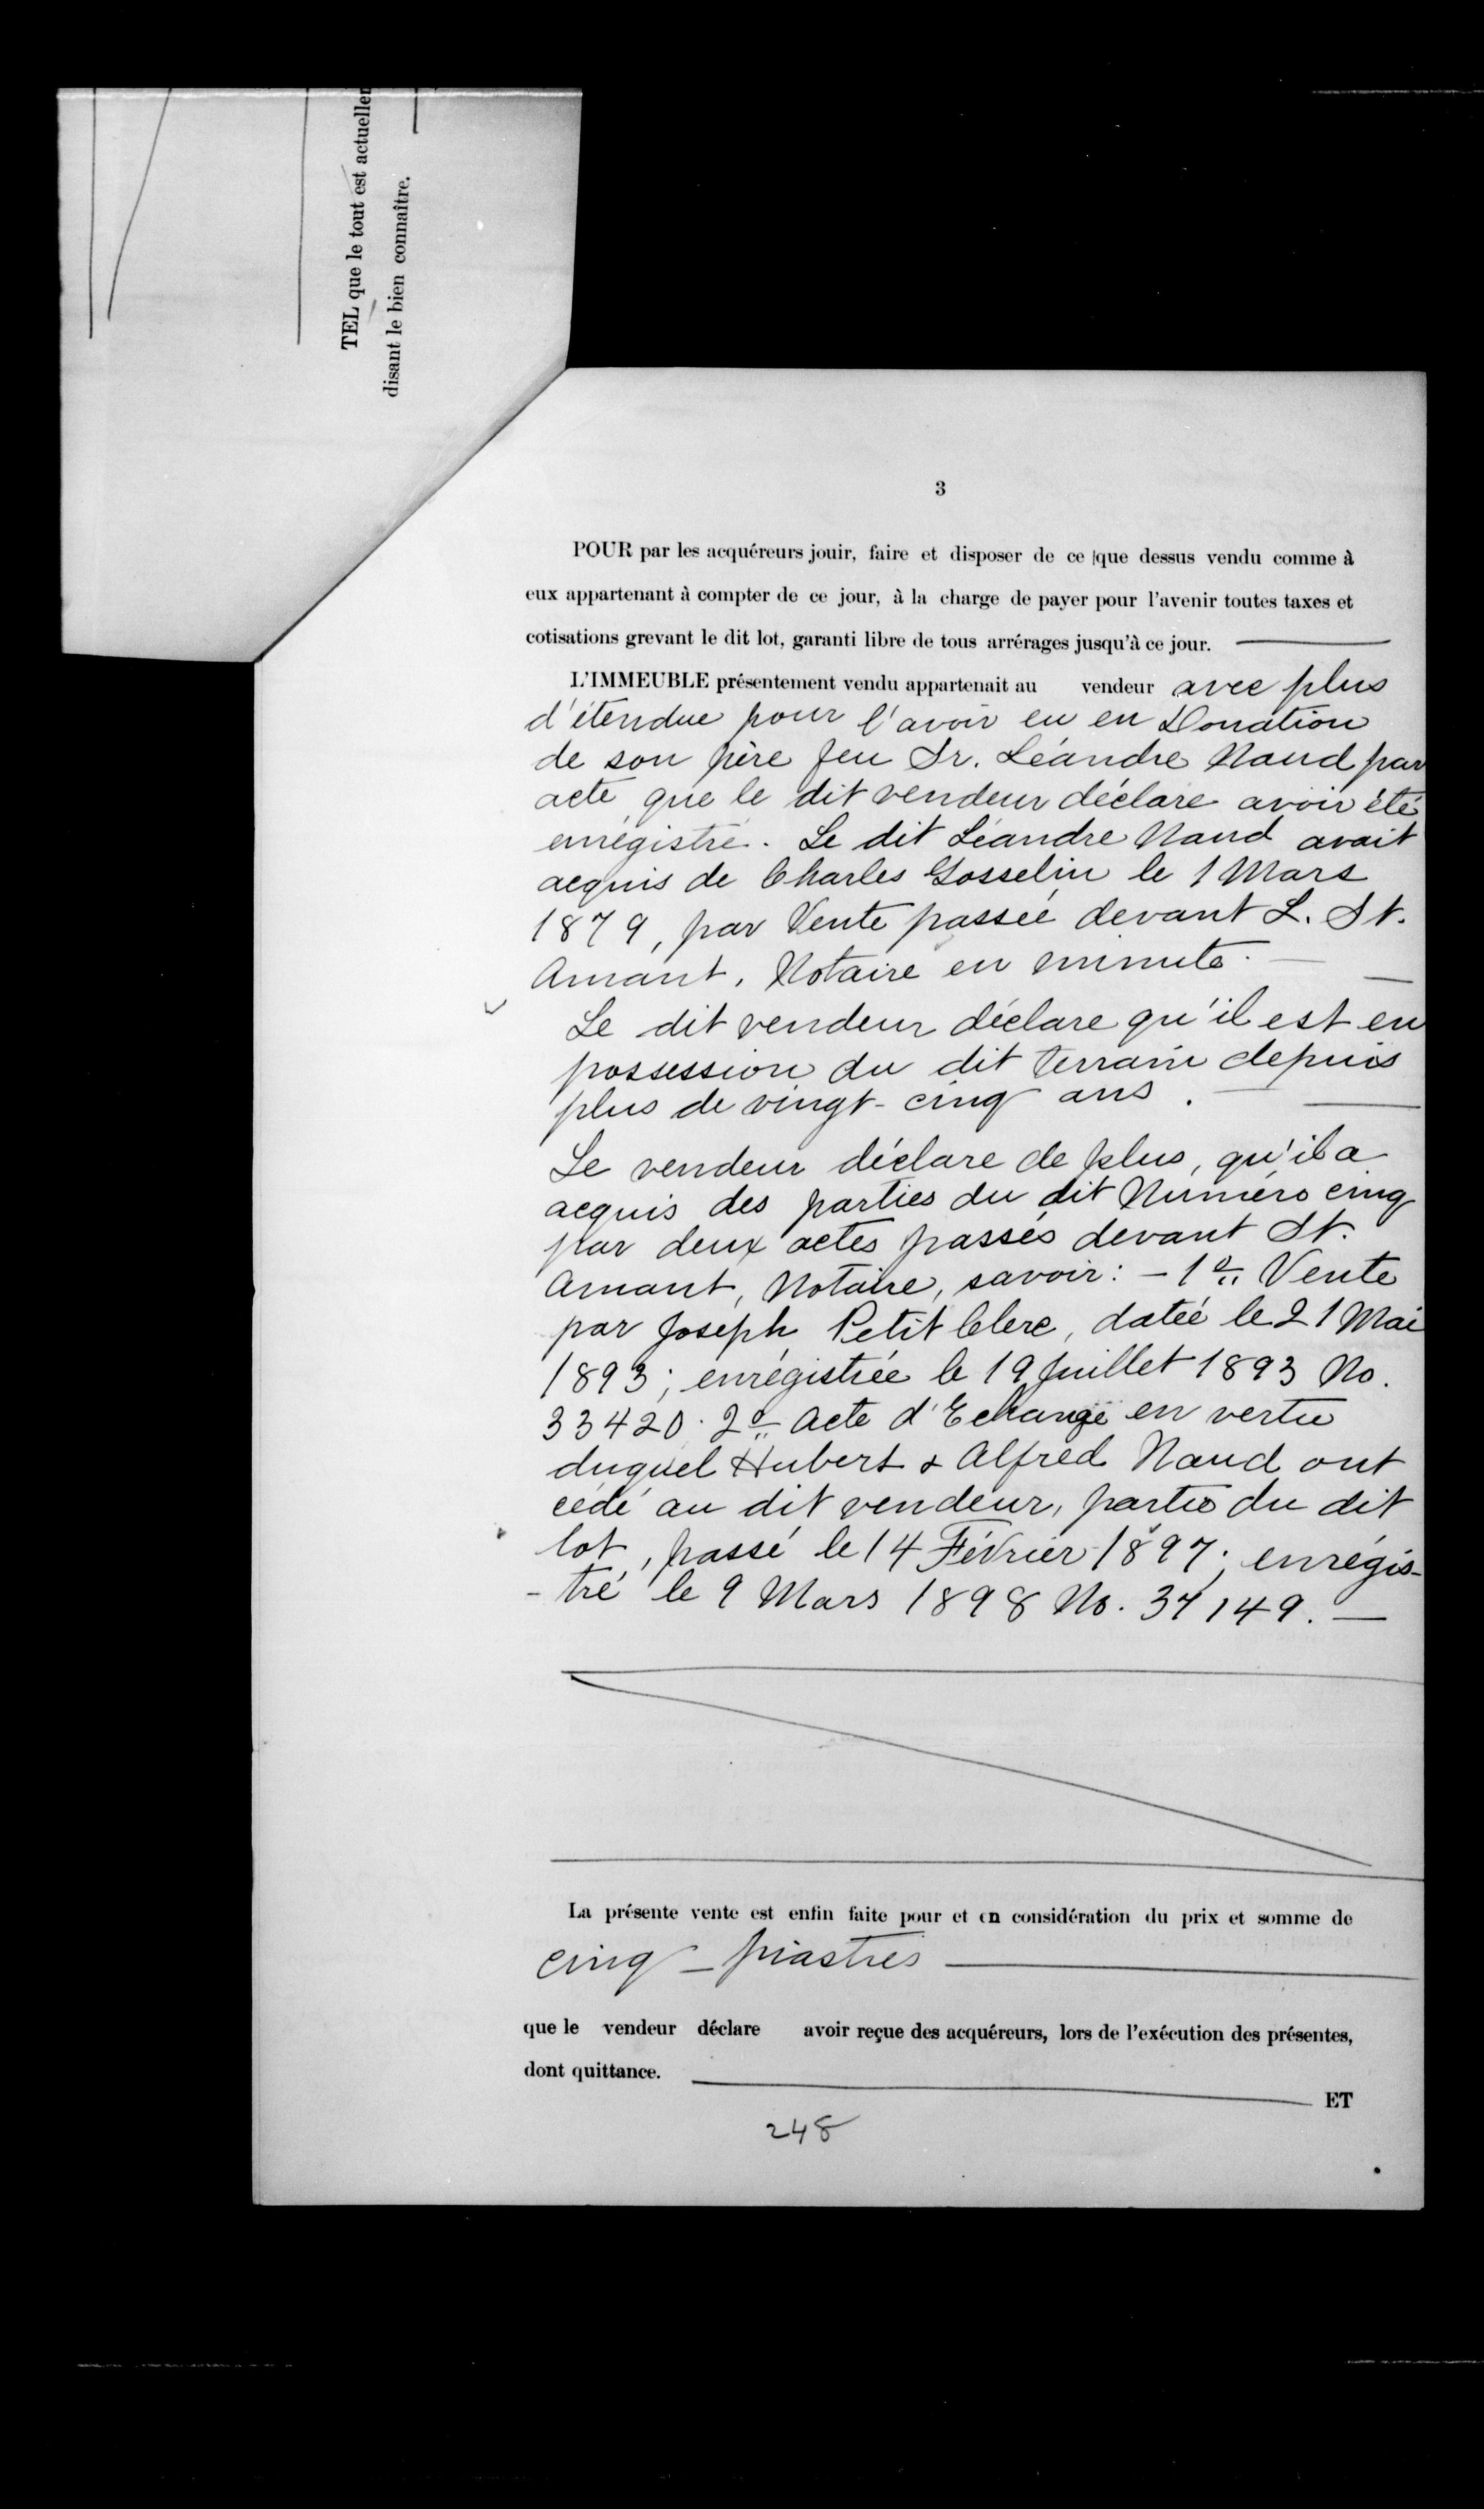 TEL que le tout est actuellem
disant le bien connaître.
3
POUR par les acquéreurs jouir, faire et disposer de ce que dessus vendu comme à
eux appartenant à compter de ce jour, à la charge de payer pour l'avenir toutes taxes et
cotisations grevant le dit lot, garanti libre de tous arrérages jusqu'à ce jour.
L'IMMEUBLE présentement vendu appartenait au vendeur avec plus
d'étendue pour l'avoir eu en Donation
de son père feu Sr. Léandre Naud par
acte que le dit vendeur déclare avoir été
enrégistré. Le dit Léandre Naud avait
acquis de Charles Gosselin le 1 Mars
1879, par Vente passée devant L. St.
Amant, Notaire en minute.
Le dit vendeur déclare qu'il est en
possession du dit terrain depuis
plus de vingt-cinq ans.
Le vendeur déclare de plus, qu'il a
acquis des parties du dit Numéro cinq
par deux actes passés devant St.
Amant, Notaire, savoir: - 1o Vente
par Joseph Petit Clerc, datée le 21 Mai
1893; enrégistrée le 19 Juillet 1893 No.
33420. 2o Acte d'Echange en vertu
duquel Hubert & Alfred Naud ont
cédé au dit vendeur, partie du dit
lot, passé le 14 Février 1897; enrégis-
-tré le 9 Mars 1898 No. 37149.
La présente vente est enfin faite pour et en considération du prix et somme de
cinq - piastres
que le vendeur déclare avoir reçue des acquéreurs, lors de l'exécution des présentes,
dont quittance.
ET
248